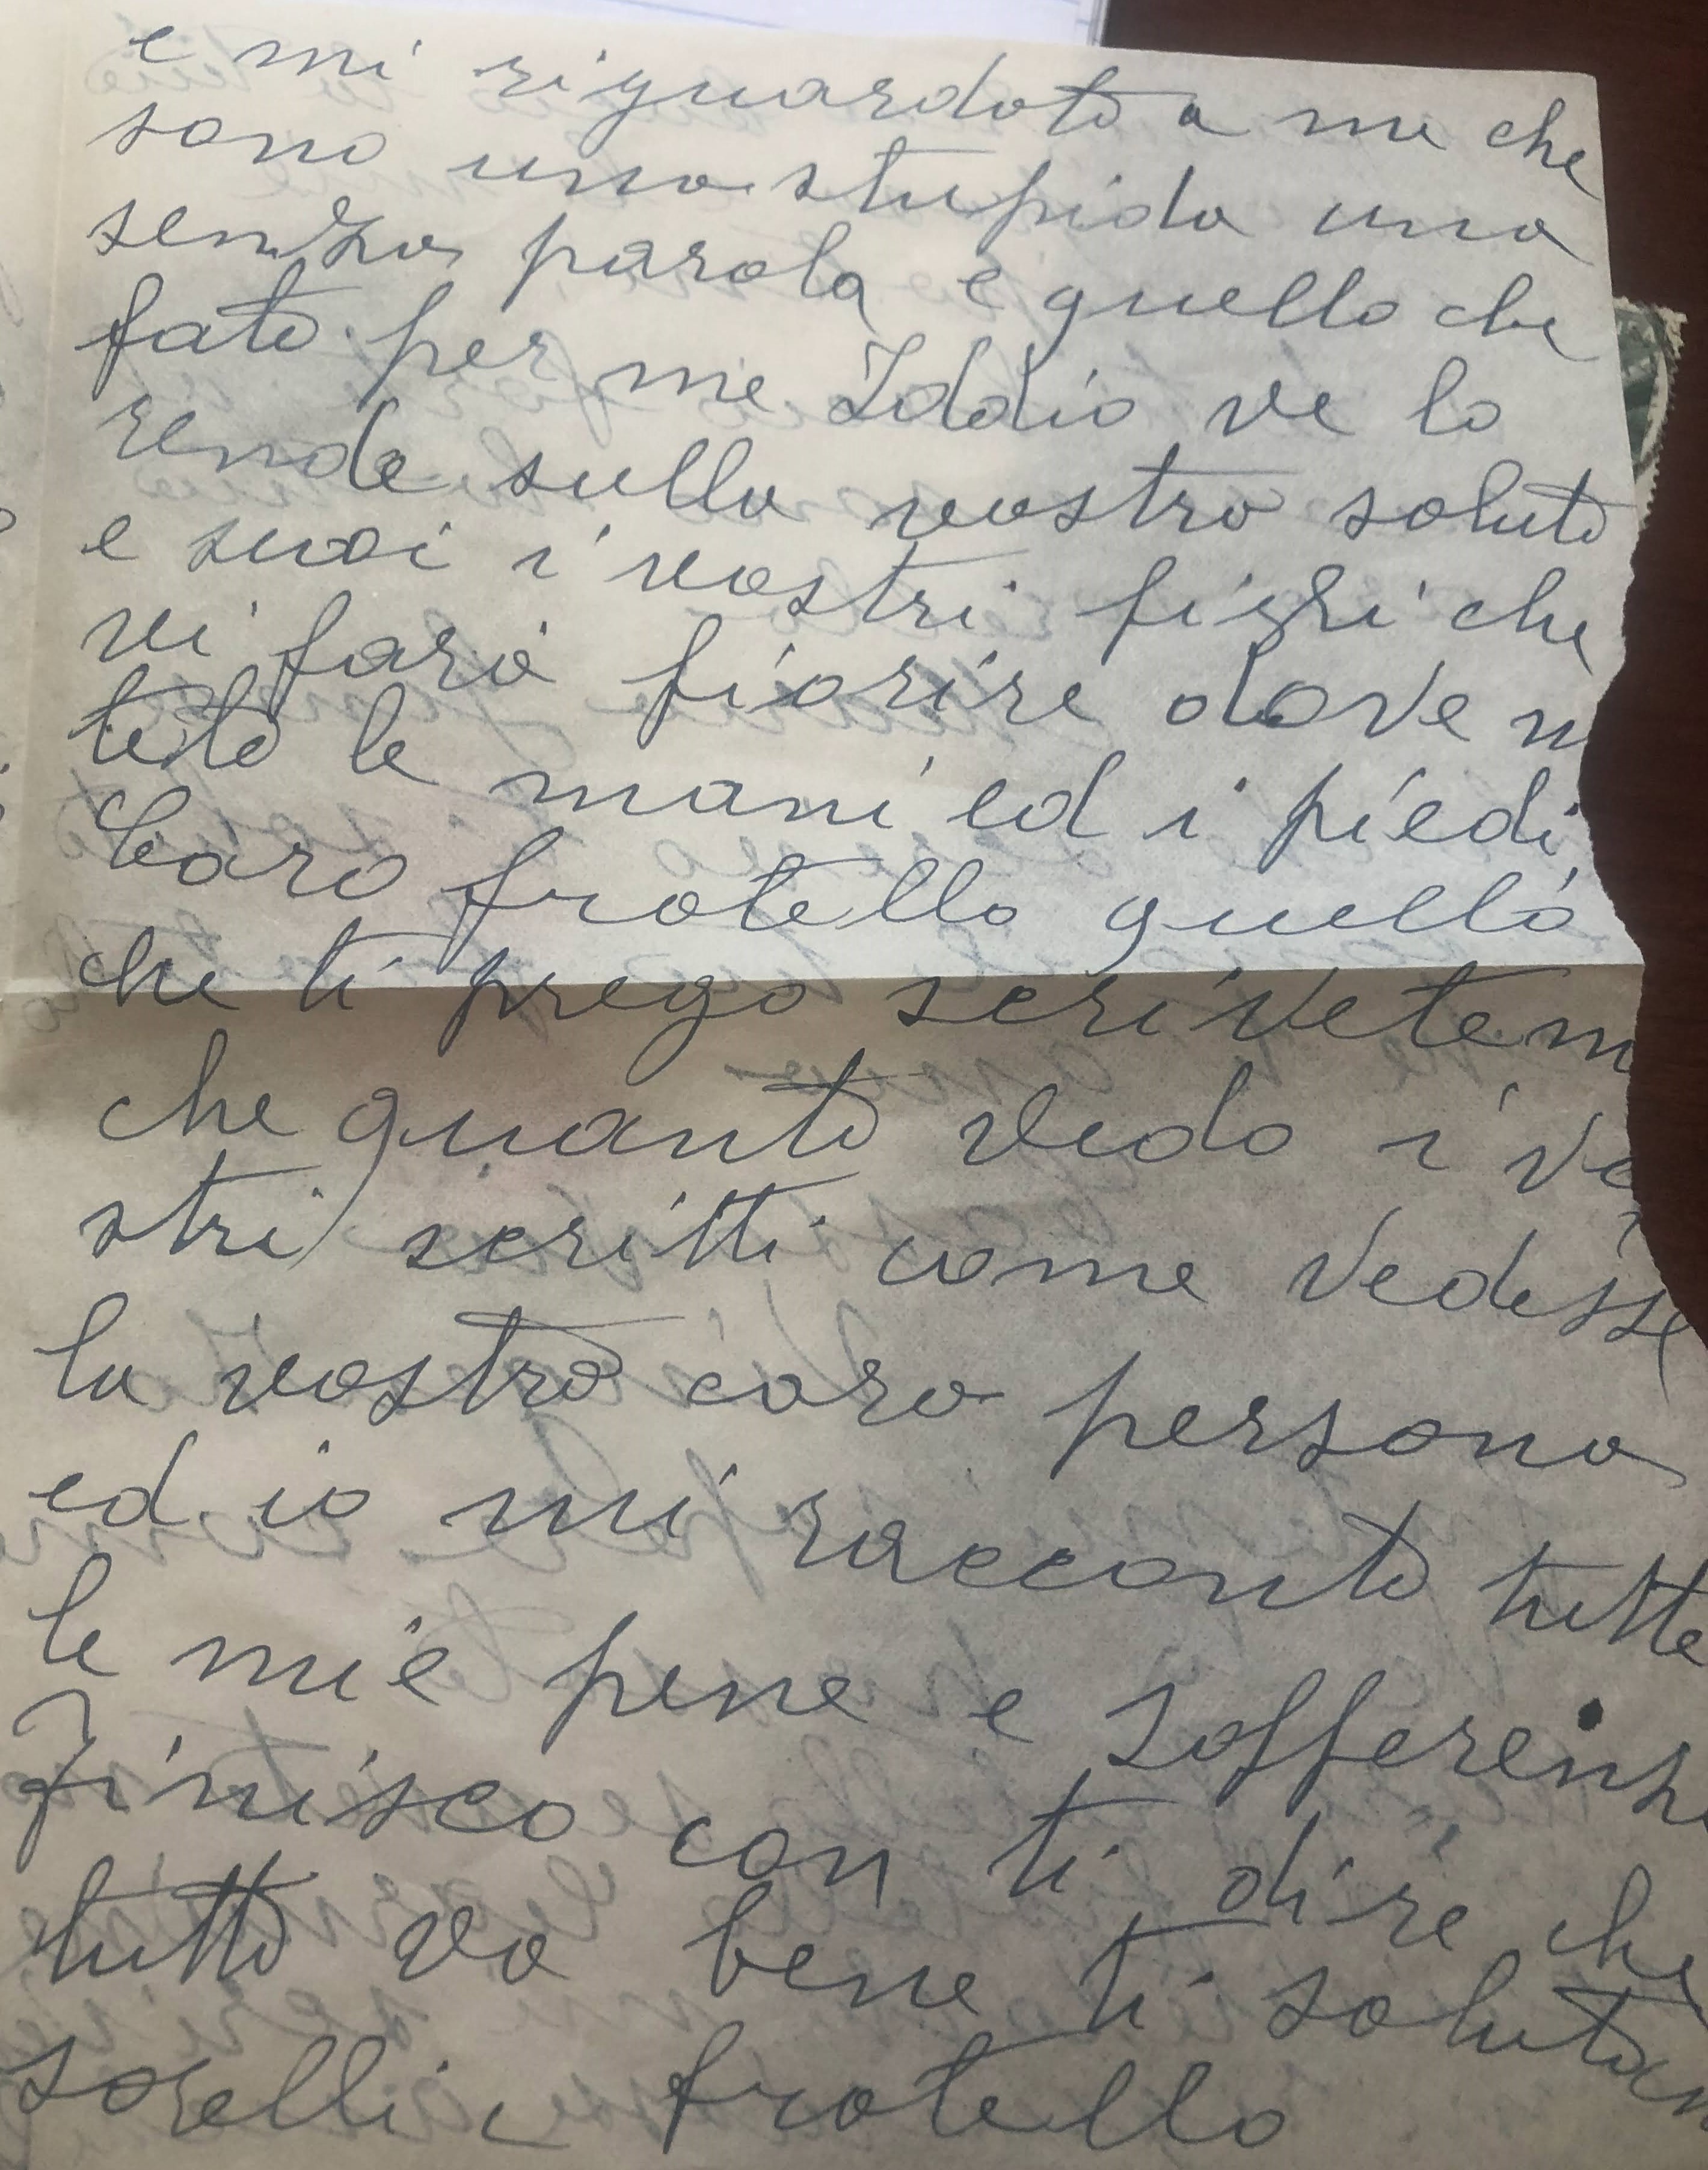 e mi riguardoto a me che
sono una stupida una
senza parola e quello che
fato per me Iddio ve lo
rende sulla vostra saluto
e suoi i vostri figli che
vi farà fiorire dove m
teto le mani ed i piedi,
Caro fratello quello
che ti prego scrivetem
che quanto vedo i vo
stri scritti come vedesse
la vostra cara persona
ed io mi racconto tutte
le mie pene e sofferenz
Finisco con ti dire che
tutto va bene ti salutan
sorelli e fratello